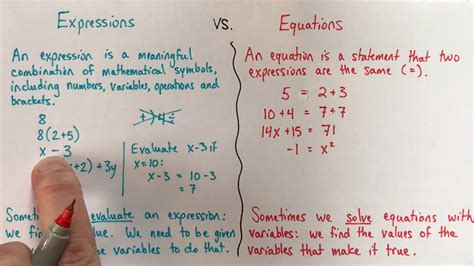 Expressions
vs.
Equations
An expression is a meaningful
combination of mathematical symbols,
including numbers, variables, operations and
brackets.
8
8(2+5)
x - 3
+2) + 3y
Evaluate x-3 if
x=10:
x-3 = 10-3
= 7
Sometimes evaluate an expression:
we fi value. We need to be given
variables to do that.
An equation is a statement that two
expressions are the same (=).
5 = 2+3
10+4 = 7+7
14x+15 = 71
-1 = x²
Sometimes we solve equations with
variables: we find the values of the
variables that make it true.